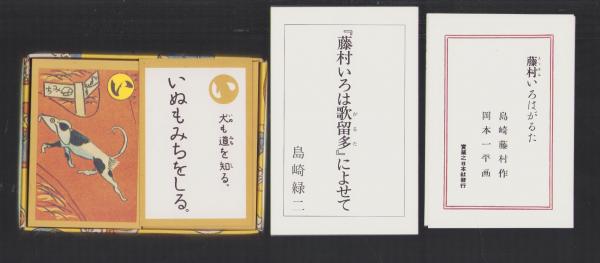 い
い
犬も道を知る。
いぬ
みち
し
いぬもみちをしる。
『藤村いろは歌留多』によせて
かるた
島崎緑二
藤村いろはがるた
とうそん
島崎藤村作
岡本一平画
實業之日本社發行